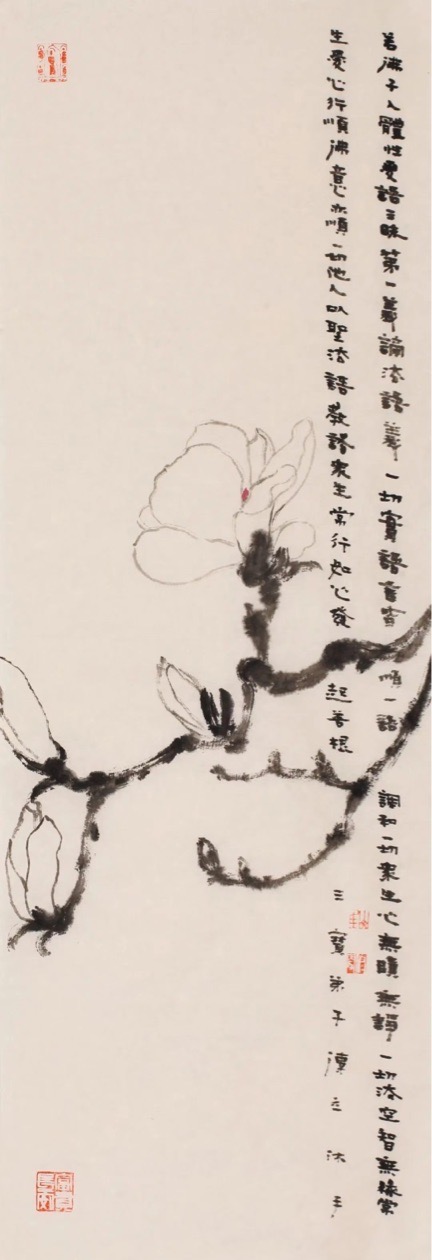 若佛子入體性愛語三昧第一義諦法語義一切實語言皆順一語調和一切衆生心無瞋無諍一切法空智無緣常
生愛心行順佛意亦順一切他人以聖法語教諸衆生常行如心發起善根
三寶弟子沐手